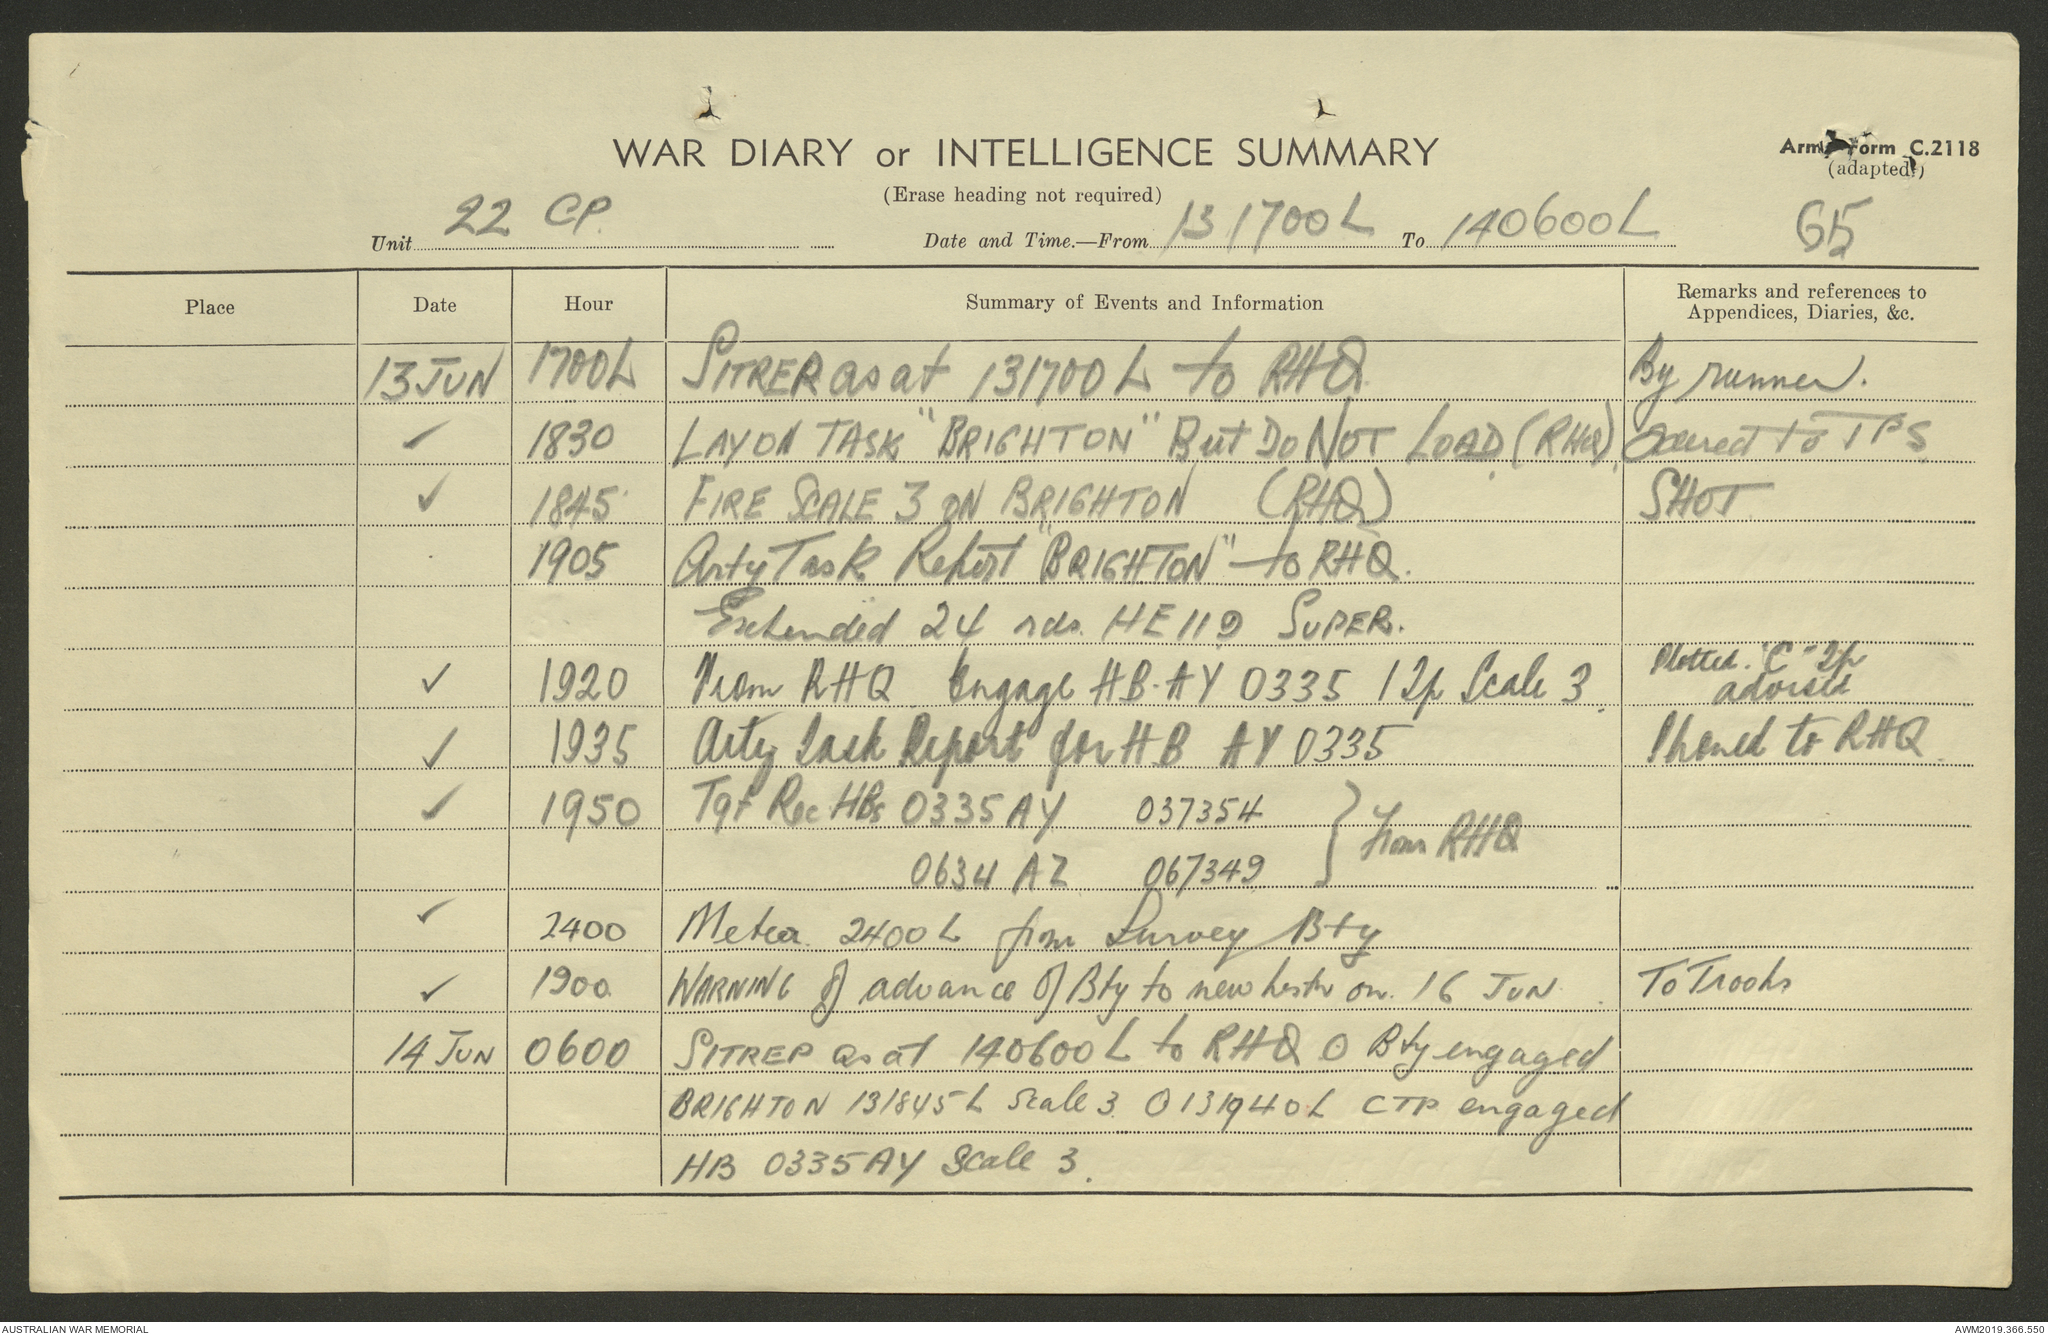 WAR DIARY or INTELLIGENCE SUMMARY
Army Form C.2118
(Erase heading not required)
(adapted)
Unit 22 CP. Date and Time.—From 131700L To 140600L 65
Place Date Hour Summary of Events and Information Remarks and references to
Appendices, Diaries, &c.
13 JUN 1700L SITREP as at 131700L to RHQ. By runner.
✓ 1830 LAY ON TASK "BRIGHTON" But Do NOT LOAD (RHQ). to TPS
✓ 1845 FIRE SCALE 3 ON BRIGHTON (RHQ) SHOT
1905 Arty Task Report "BRIGHTON" to RHQ.
Expended 24 rds. HE 119 SUPER.
✓ 1920 From RHQ Engage HB. AY 0335 1 Tp Scale 3. Plotted. "C" Tp
advised
✓ 1935 Arty Task Report for HB AY 0335 Phoned to RHQ.
✓ 1950 Tgt Rec HBs 0335 AY 037354 } from RHQ
0634 AZ 067349
✓ 2400 Meteor 2400L from Survey Bty
✓ 1900. WARNING of advance of Bty to new posn on. 16 JUN. To Troops
14 JUN 0600 SITREP as at 140600L to RHQ O Bty engaged
BRIGHTON 131845L Scale 3. O 131940L CTP engaged
HB 0335AY Scale 3.
AUSTRALIAN WAR MEMORIAL AWM2019.366.550